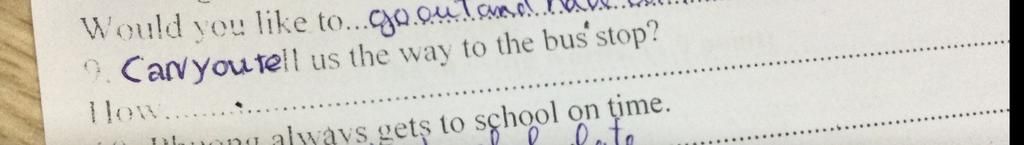 Would you like to...go out and have
9. Can you tell us the way to the bus stop?
How..........
always gets to school on time.
late